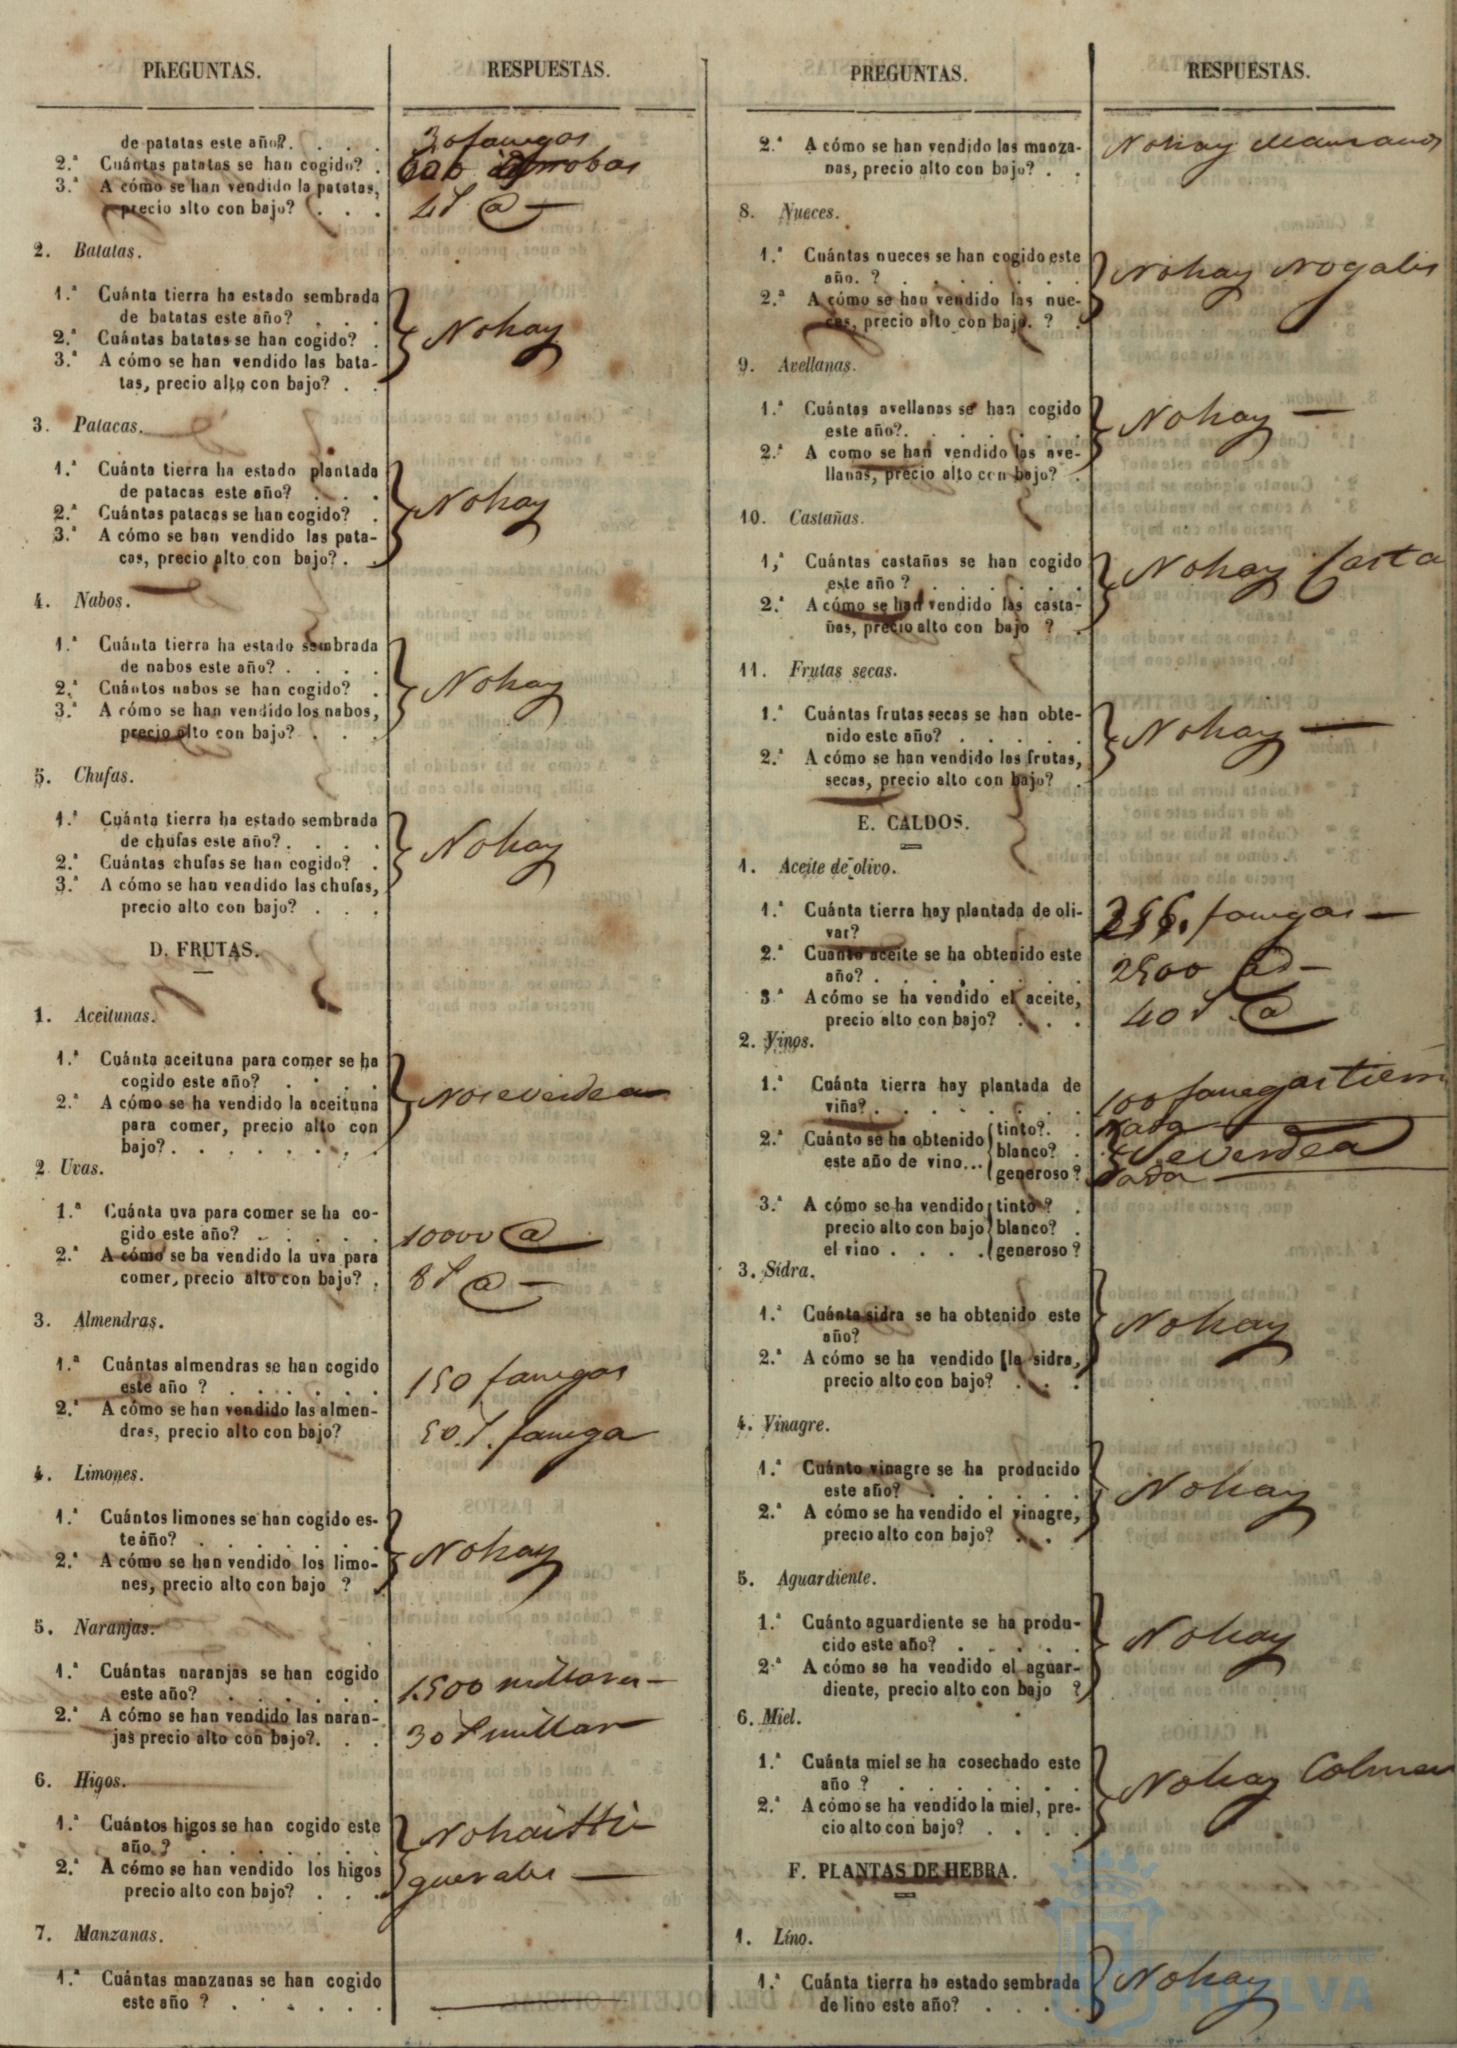 PREGUNTAS.
RESPUESTAS.
de patatas este año?. . . .
30 fanegas
2.ª Cuántas patatas se han cogido? .
600 arrobas
3.ª A cómo se han vendido la patatas,
precio alto con bajo? . . .
2. Batatas.
1.ª Cuánta tierra ha estado sembrada
de batatas este año? . . .
2.ª Cuántas batatas se han cogido? .
No hay
3.ª A cómo se han vendido las bata-
tas, precio alto con bajo? . .
3. Patacas.
1.ª Cuánta tierra ha estado plantada
de patacas este año? . . .
2.ª Cuántas patacas se han cogido? .
No hay
3.ª A cómo se han vendido las pata-
cas, precio alto con bajo? . .
4. Nabos.
1.ª Cuánta tierra ha estado sembrada
de nabos este año? . . . .
2.ª Cuántos nabos se han cogido? .
No hay
3.ª A cómo se han vendido los nabos,
precio alto con bajo? . . .
5. Chufas.
1.ª Cuánta tierra ha estado sembrada
de chufas este año?. . . .
2.ª Cuántas chufas se han cogido? .
No hay
3.ª A cómo se han vendido las chufas,
precio alto con bajo? . . .
D. FRUTAS.
1. Aceitunas.
1.ª Cuánta aceituna para comer se ha
cogido este año? . . . .
2.ª A cómo se ha vendido la aceituna
No se verdea
para comer, precio alto con
bajo?. . . . . . . .
2 Uvas.
1.ª Cuánta uva para comer se ha co-
gido este año? . . . . .
10000 @
2.ª A cómo se ha vendido la uva para
comer, precio alto con bajo? .
3. Almendras.
1.ª Cuántas almendras se han cogido
este año ? . . . . . .
150 fanegas
2.ª A cómo se han vendido las almen-
dras, precio alto con bajo?
4. Limones.
1.ª Cuántos limones se han cogido es-
te año? . . . . . . .
No hay
2.ª A cómo se han vendido los limo-
nes, precio alto con bajo ?
5. Naranjas.
1.ª Cuántas naranjas se han cogido
este año? . . . . . .
1.500 millares
2.ª A cómo se han vendido las naran-
jas precio alto con bajo?. . .
6. Higos.
1.ª Cuántos higos se han cogido este
año ? . . . . . . .
2.ª A cómo se han vendido los higos
guerales
precio alto con bajo? . . .
7. Manzanas.
1.ª Cuántas manzanas se han cogido
este año ? . . . . . .
PREGUNTAS.
RESPUESTAS.
2.ª A cómo se han vendido las manza-
No hay Manzanos
nas, precio alto con bajo? . .
8. Nueces.
1.ª Cuántas nueces se han cogido este
año. ? . . . . . . .
No hay Nogales
2.ª A cómo se han vendido las nue-
ces, precio alto con bajo. ? .
9. Avellanas.
1.ª Cuántas avellanas se han cogido
este año?. . . . . . .
No hay
2.ª A como se han vendido las ave-
llanas, precio alto con bajo? .
10. Castañas.
1,ª Cuántas castañas se han cogido
este año ? . . . . . .
No hay Casta
2.ª A cómo se han vendido las casta-
ñas, precio alto con bajo ? .
11. Frutas secas.
1.ª Cuántas frutas secas se han obte-
nido este año? . . . . .
No hay
2.ª A cómo se han vendido las frutas,
secas, precio alto con bajo? .
E. CALDOS.
1. Aceite de olivo.
1.ª Cuánta tierra hay plantada de oli-
var?
fanegas
2.ª Cuanto aceite se ha obtenido este
año? . . . . . . . .
2500 @s
3ª A cómo se ha vendido el aceite,
precio alto con bajo? . . .
2. Vinos.
1.ª Cuánta tierra hay plantada de
viña?. . . . . . . .
100 fanegas tierra
2.ª Cuánto se ha obtenido este año de vino... tinto?. .
nada
blanco? .
Se verdea
generoso?
nada
3.ª A cómo se ha vendido precio alto con bajo el vino . . . . tinto ? .
blanco? .
generoso ?
3. Sídra.
1.ª Cuánta sidra se ha obtenido este
año?
No hay
2.ª A cómo se ha vendido la sidra,
precio alto con bajo? . . .
4. Vinagre.
1.ª Cuánto vinagre se ha producido
este año? . . . . . .
No hay
2.ª A cómo se ha vendido el vinagre,
precio alto con bajo? . . .
5. Aguardiente.
1.ª Cuánto aguardiente se ha produ-
cido este año? . . . . .
No hay
2.ª A cómo se ha vendido el aguar-
diente, precio alto con bajo ?
6. Miel.
1.ª Cuánta miel se ha cosechado este
año ? . . . . . . .
No hay Colmen
2.ª A cómo se ha vendido la miel, pre-
cio alto con bajo? . . . .
F. PLANTAS DE HEBRA.
1. Líno.
1.ª Cuánta tierra ha estado sembrada
No hay
de lino este año? . . . .
Ayuntamiento de
HUELVA